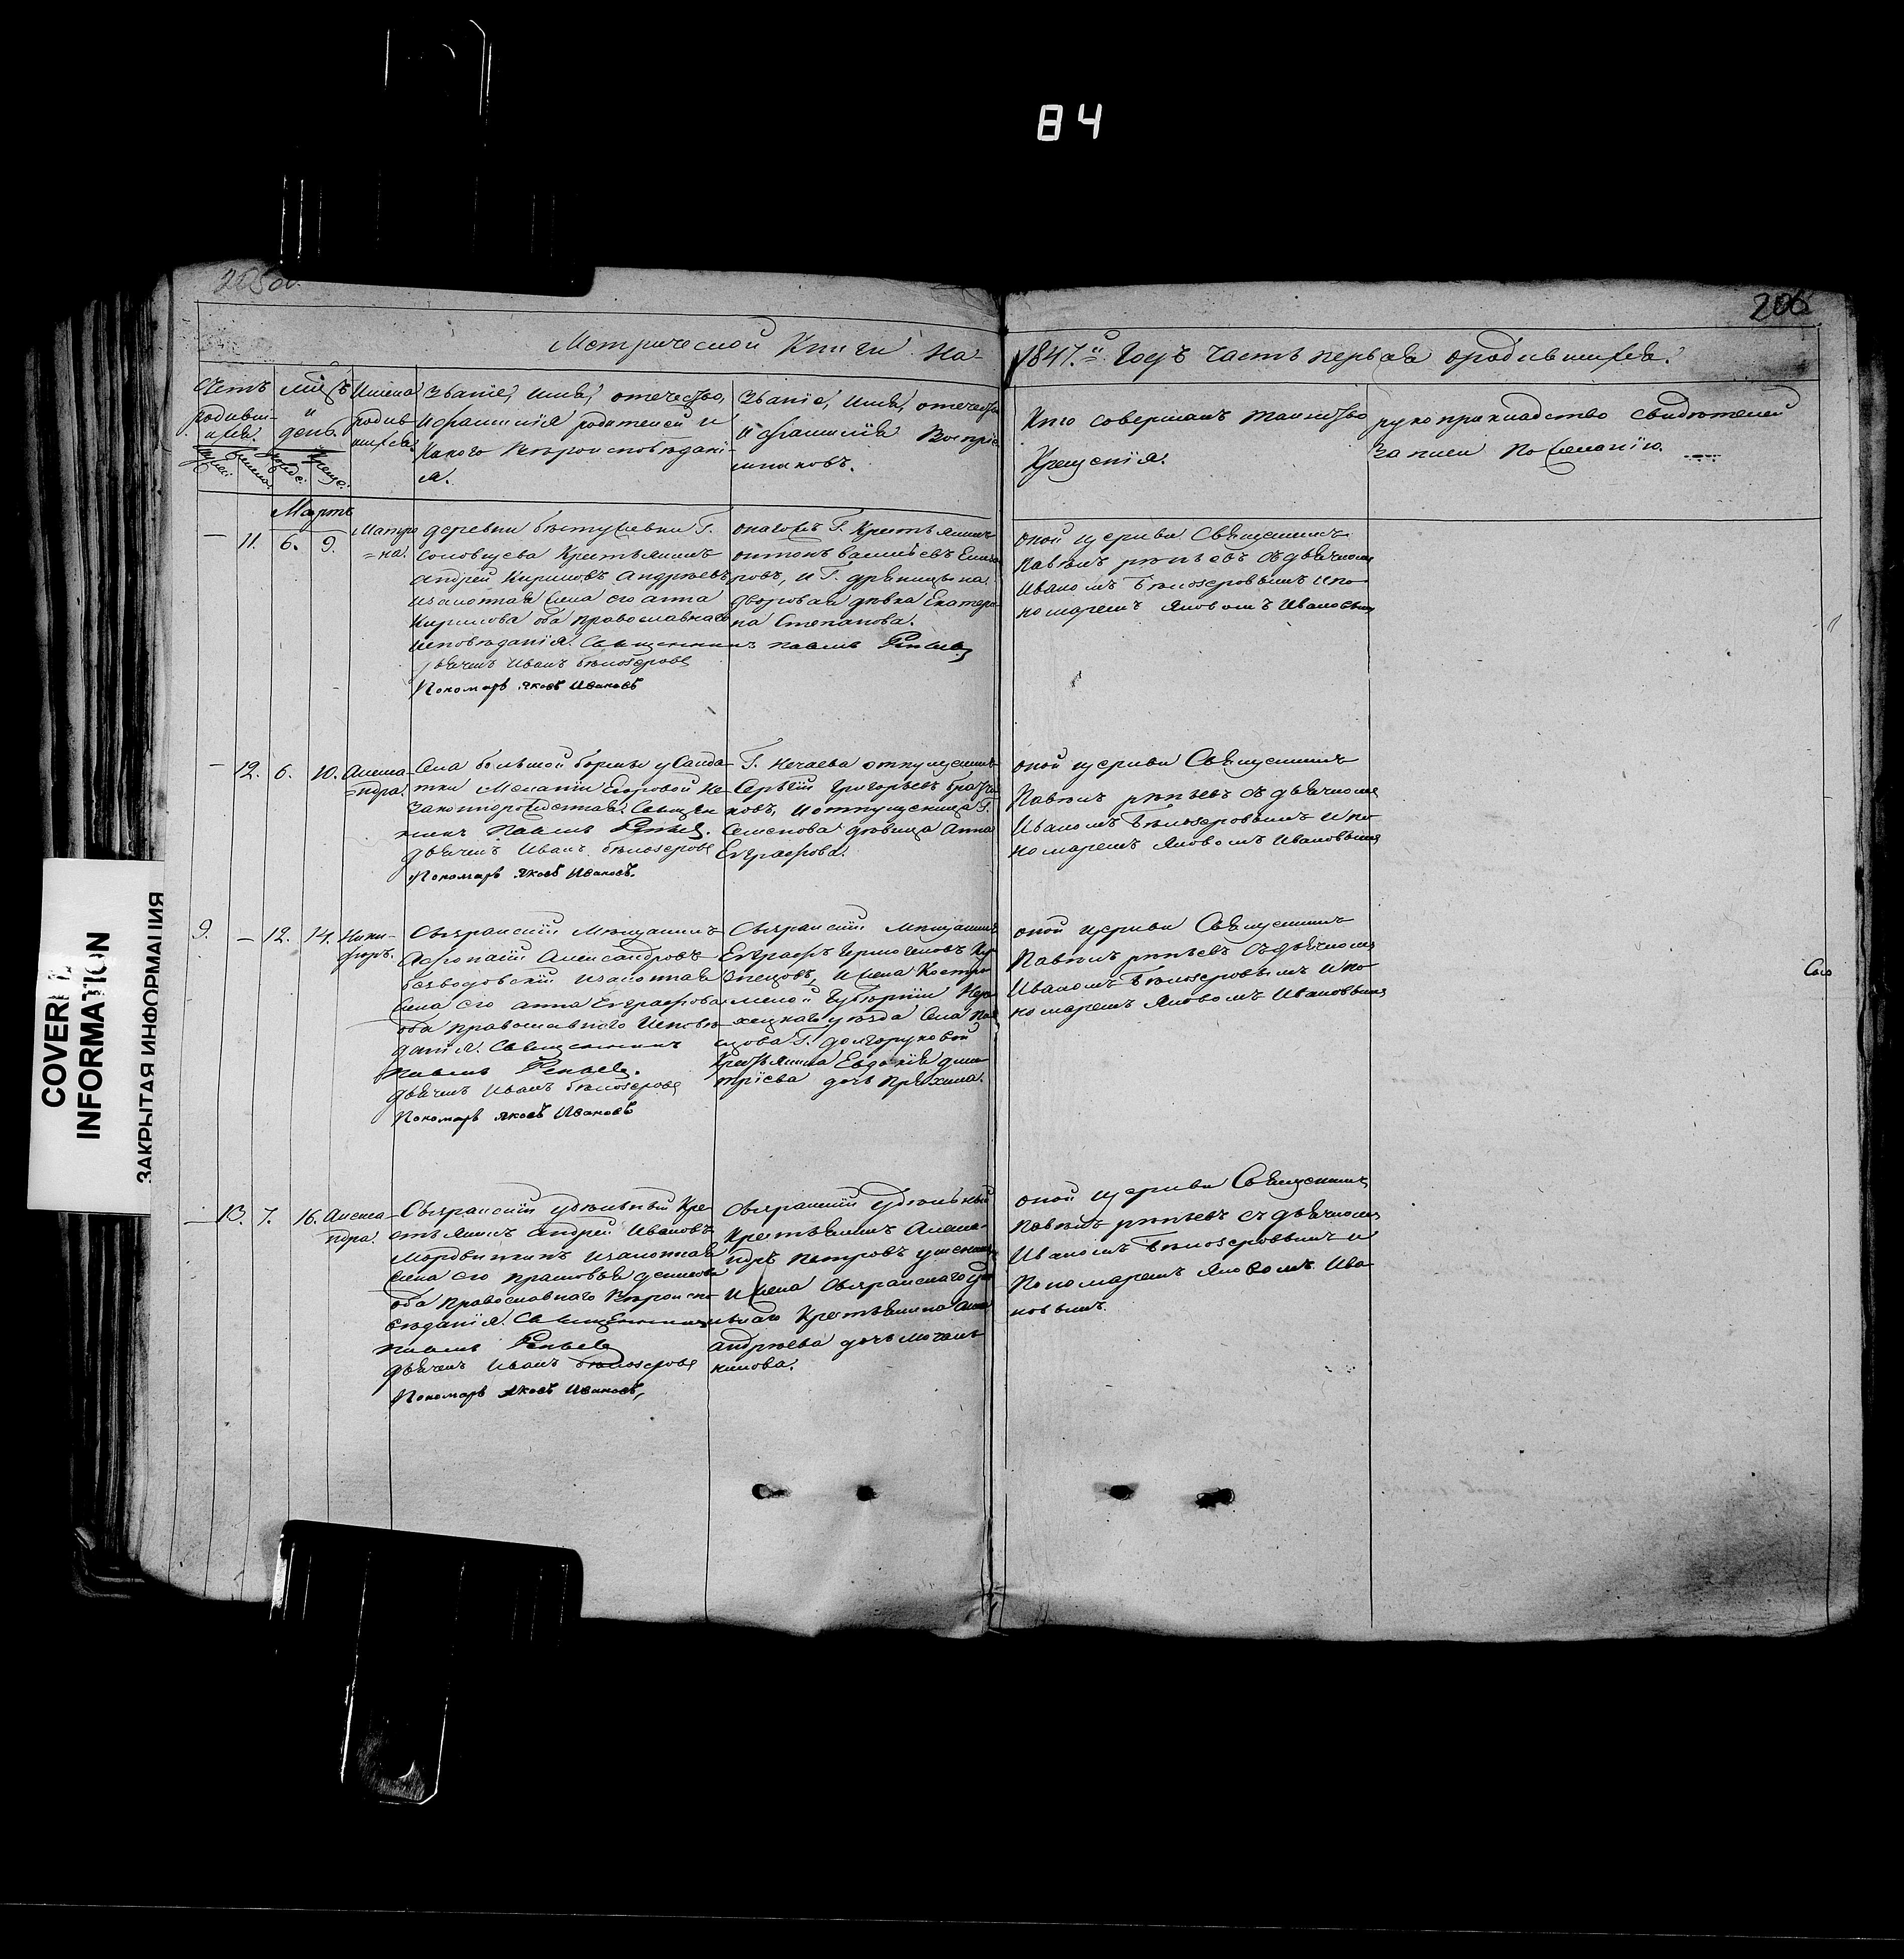 84
205об.
206
Метрической Книги на
1847.й Годъ часть первая о родившихся.
Счетъ родивш-ихся.
мѣсяцъ и день.
рожд:
крещ:
Имена родившихся.
Званіе, имя, отчество,
и фамилія родителей и
какого вѣроисповѣдані-
я.
Званіе, имя, отечество
и фамилія воспріе-
мниковъ.
Кто совершалъ таинство
крещенія.
рукоприкладство свидѣтелей
записи по желанію.
Мартъ
— 11. 6. 9.
Матро
=на.
деревни Г.
Соловцева Крестьянинъ
Андрей Кириловъ Андрѣевъ
и законная жена его Анна
Кирилова оба православнаго
исповѣданія. Священникъ Павелъ Рѣпьевъ
дьячекъ Иванъ Бѣлозеровъ
Пономарь Яковъ Ивановъ
онагожъ Г. Крестьянинъ
Антонъ Васильевъ
ровъ, и Г.
дворовая дѣвка Екатери
на Степанова.
оной церкви Священникъ
Павелъ рѣпьевъ съ дьячкомъ
Иваномъ Бѣлозеровымъ и по
номаремъ Яковомъ Ивановымъ
— 12. 6. 10.
Алекса
=ндра.
Села большой борлы у Салда-
тки Меланіи Егоровой не-
законнорожденная. Священ
никъ Павелъ Рѣпьевъ.
дьячекъ Иванъ Бѣлозеровъ
Пономарь Яковъ Ивановъ.
Г. Нечаева отпущенникъ
Сергѣй Григорьевъ
ковъ, и отпущенница Г.
Семенова дѣвица Анна
Евграфова.
оной церкви Священникъ
Павелъ рѣпьевъ съ дьячкомъ
Иваномъ Бѣлозеровымъ и по
номаремъ Яковомъ Ивановымъ
9. — 12. 14.
Ники-
форъ.
Сызранскій Мѣщанинъ
Александровъ
и законная
жена его Анна Евграфова
оба православнаго исповѣ
данія. Священникъ
Павелъ Рѣпьевъ.
дьячекъ Иванъ Бѣлозеровъ
Пономарь Яковъ Ивановъ
Сызранскій Мѣщанинъ
Евграфъ Ермогеновъ Ку
знецовъ, и жена Костро
мской Губерніи Нере
хецкаго уѣзда Села
цова Г. долгоруковой
Крестьянина Евдокія дми
тріева дочь Пряхина.
оной церкви Священникъ
Павелъ рѣпьевъ съ дьячкомъ
Иваномъ Бѣлозеровымъ и по
номаремъ Яковомъ Ивановымъ
— 13. 7. 16.
Алекса
ндра.
Сызранскій удѣльный Кре-
стьянинъ Андрей Ивановъ
Мордвинкинъ и законная
жена его Прасковья денисова
оба православнаго вѣроиспо
вѣданія. Священникъ
Павелъ Рѣпьевъ
дьячекъ Иванъ Бѣлозеровъ
Пономарь Яковъ Ивановъ,
Сызранскій удѣльный
Крестьянинъ Алекса-
ндръ Петровъ
и жена Сызранскаго удѣ
льнаго Крестьянина Анна
Андрѣева дочь
кинова.
оной церкви Священникъ
Павелъ рѣпьевъ съ дьячкомъ
Иваномъ Бѣлозеровымъ и
Пономаремъ Яковомъ Ива
новымъ.
Сею
COVERED
INFORMATION
ЗАКРЫТАЯ ИНФОРМАЦИЯ